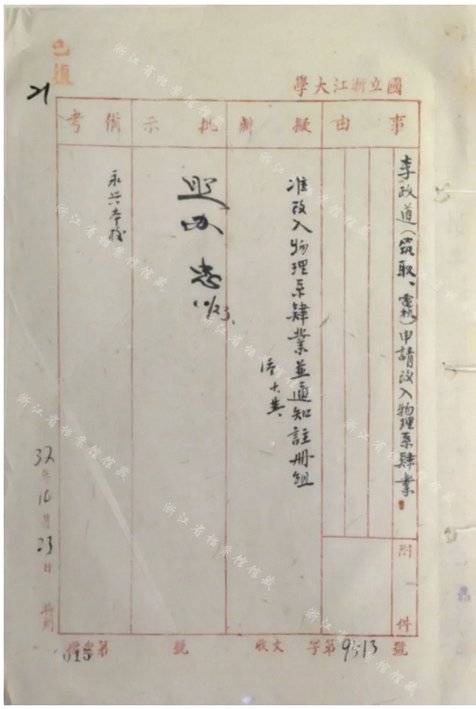 國立浙江大學
事由
擬辦
批示
備考
李政道（筑取、電机）申請改入物理系肄業
附件
准改入物理系肄業並通知註冊組
照办
10/23
永兴本校
32年10月23日
收文字第9313號
號
21
浙江省档案馆馆藏